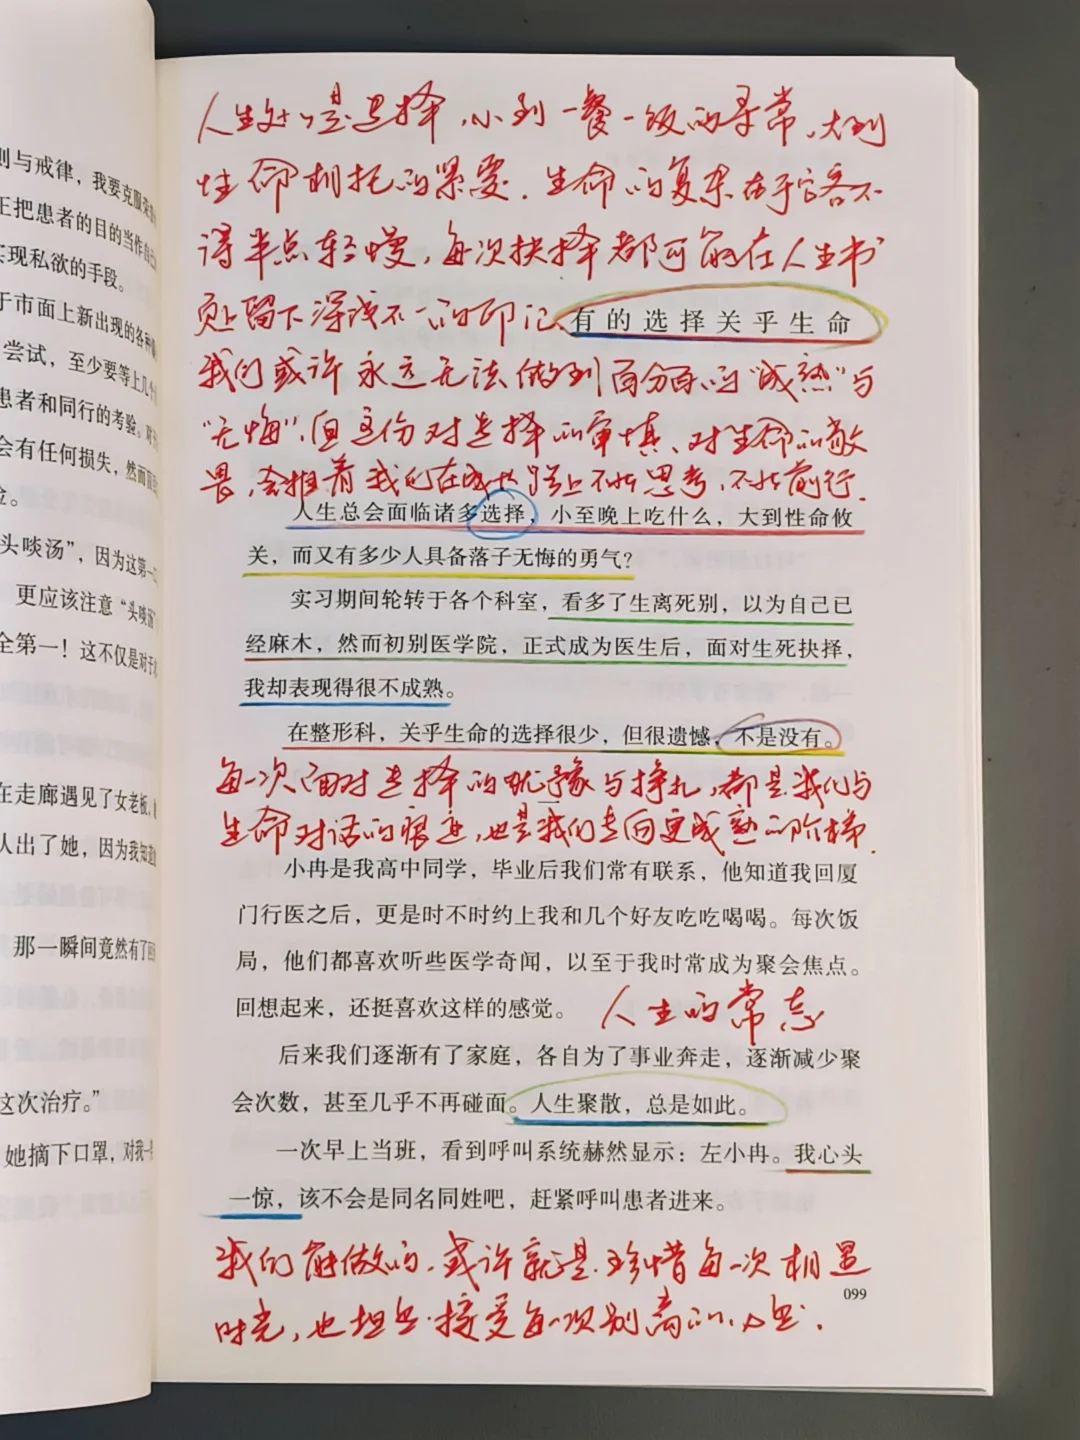 则与戒律，我要克服
正把患者的目的当作自
实现私欲的手段。
于市面上新出现的各种
尝试，至少要等上几个
患者和同行的考验。对
会有任何损失，然而
头啖汤”，因为这第一
更应该注意“头啖汤”
全第一！这不仅是对于
在走廊遇见了女老板，
人出了她，因为我知道
那一瞬间竟然有了回
这次治疗。”
她摘下口罩，对我一
人生处处是选择，小到一餐一饭的寻常，大到
性命相托的紧要。生命的复杂在于它容不
得半点轻慢，每次抉择都可能在人生书
页上留下深浅不一的印记
有的选择关乎生命
我们或许永远无法做到百分百的“成熟”与
“无悔”，但这份对选择的审慎、对生命的敬
畏，会推着我们在成长路上不断思考，不断前行.
人生总会面临诸多选择，小至晚上吃什么，大到性命攸
关，而又有多少人具备落子无悔的勇气？
实习期间轮转于各个科室，看多了生离死别，以为自己已
经麻木，然而初别医学院，正式成为医生后，面对生死抉择，
我却表现得很不成熟。
在整形科，关乎生命的选择很少，但很遗憾，不是没有。
每一次面对选择的犹豫与挣扎，都是我们与
生命对话的痕迹，也是我们走向更成熟的阶梯.
小冉是我高中同学，毕业后我们常有联系，他知道我回厦
门行医之后，更是时不时约上我和几个好友吃吃喝喝。每次饭
局，他们都喜欢听些医学奇闻，以至于我时常成为聚会焦点。
回想起来，还挺喜欢这样的感觉。
人生的常态
后来我们逐渐有了家庭，各自为了事业奔走，逐渐减少聚
会次数，甚至几乎不再碰面。人生聚散，总是如此。
一次早上当班，看到呼叫系统赫然显示：左小冉。我心头
一惊，该不会是同名同姓吧，赶紧呼叫患者进来。
我们能做的，或许就是珍惜每一次相遇
时光，也坦然接受每一次别离的
099